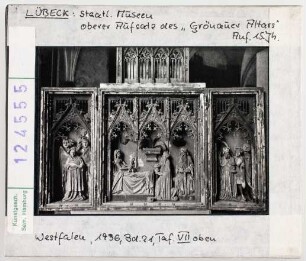 LÜBECK: Staatl. Museen
oberer Aufsatz des „Grönauer Altars"
Auf. 1574.
124555
Kunstgesch.
Sem. Hamburg
Westfalen, 1936, Bd. 21, Taf. VII oben